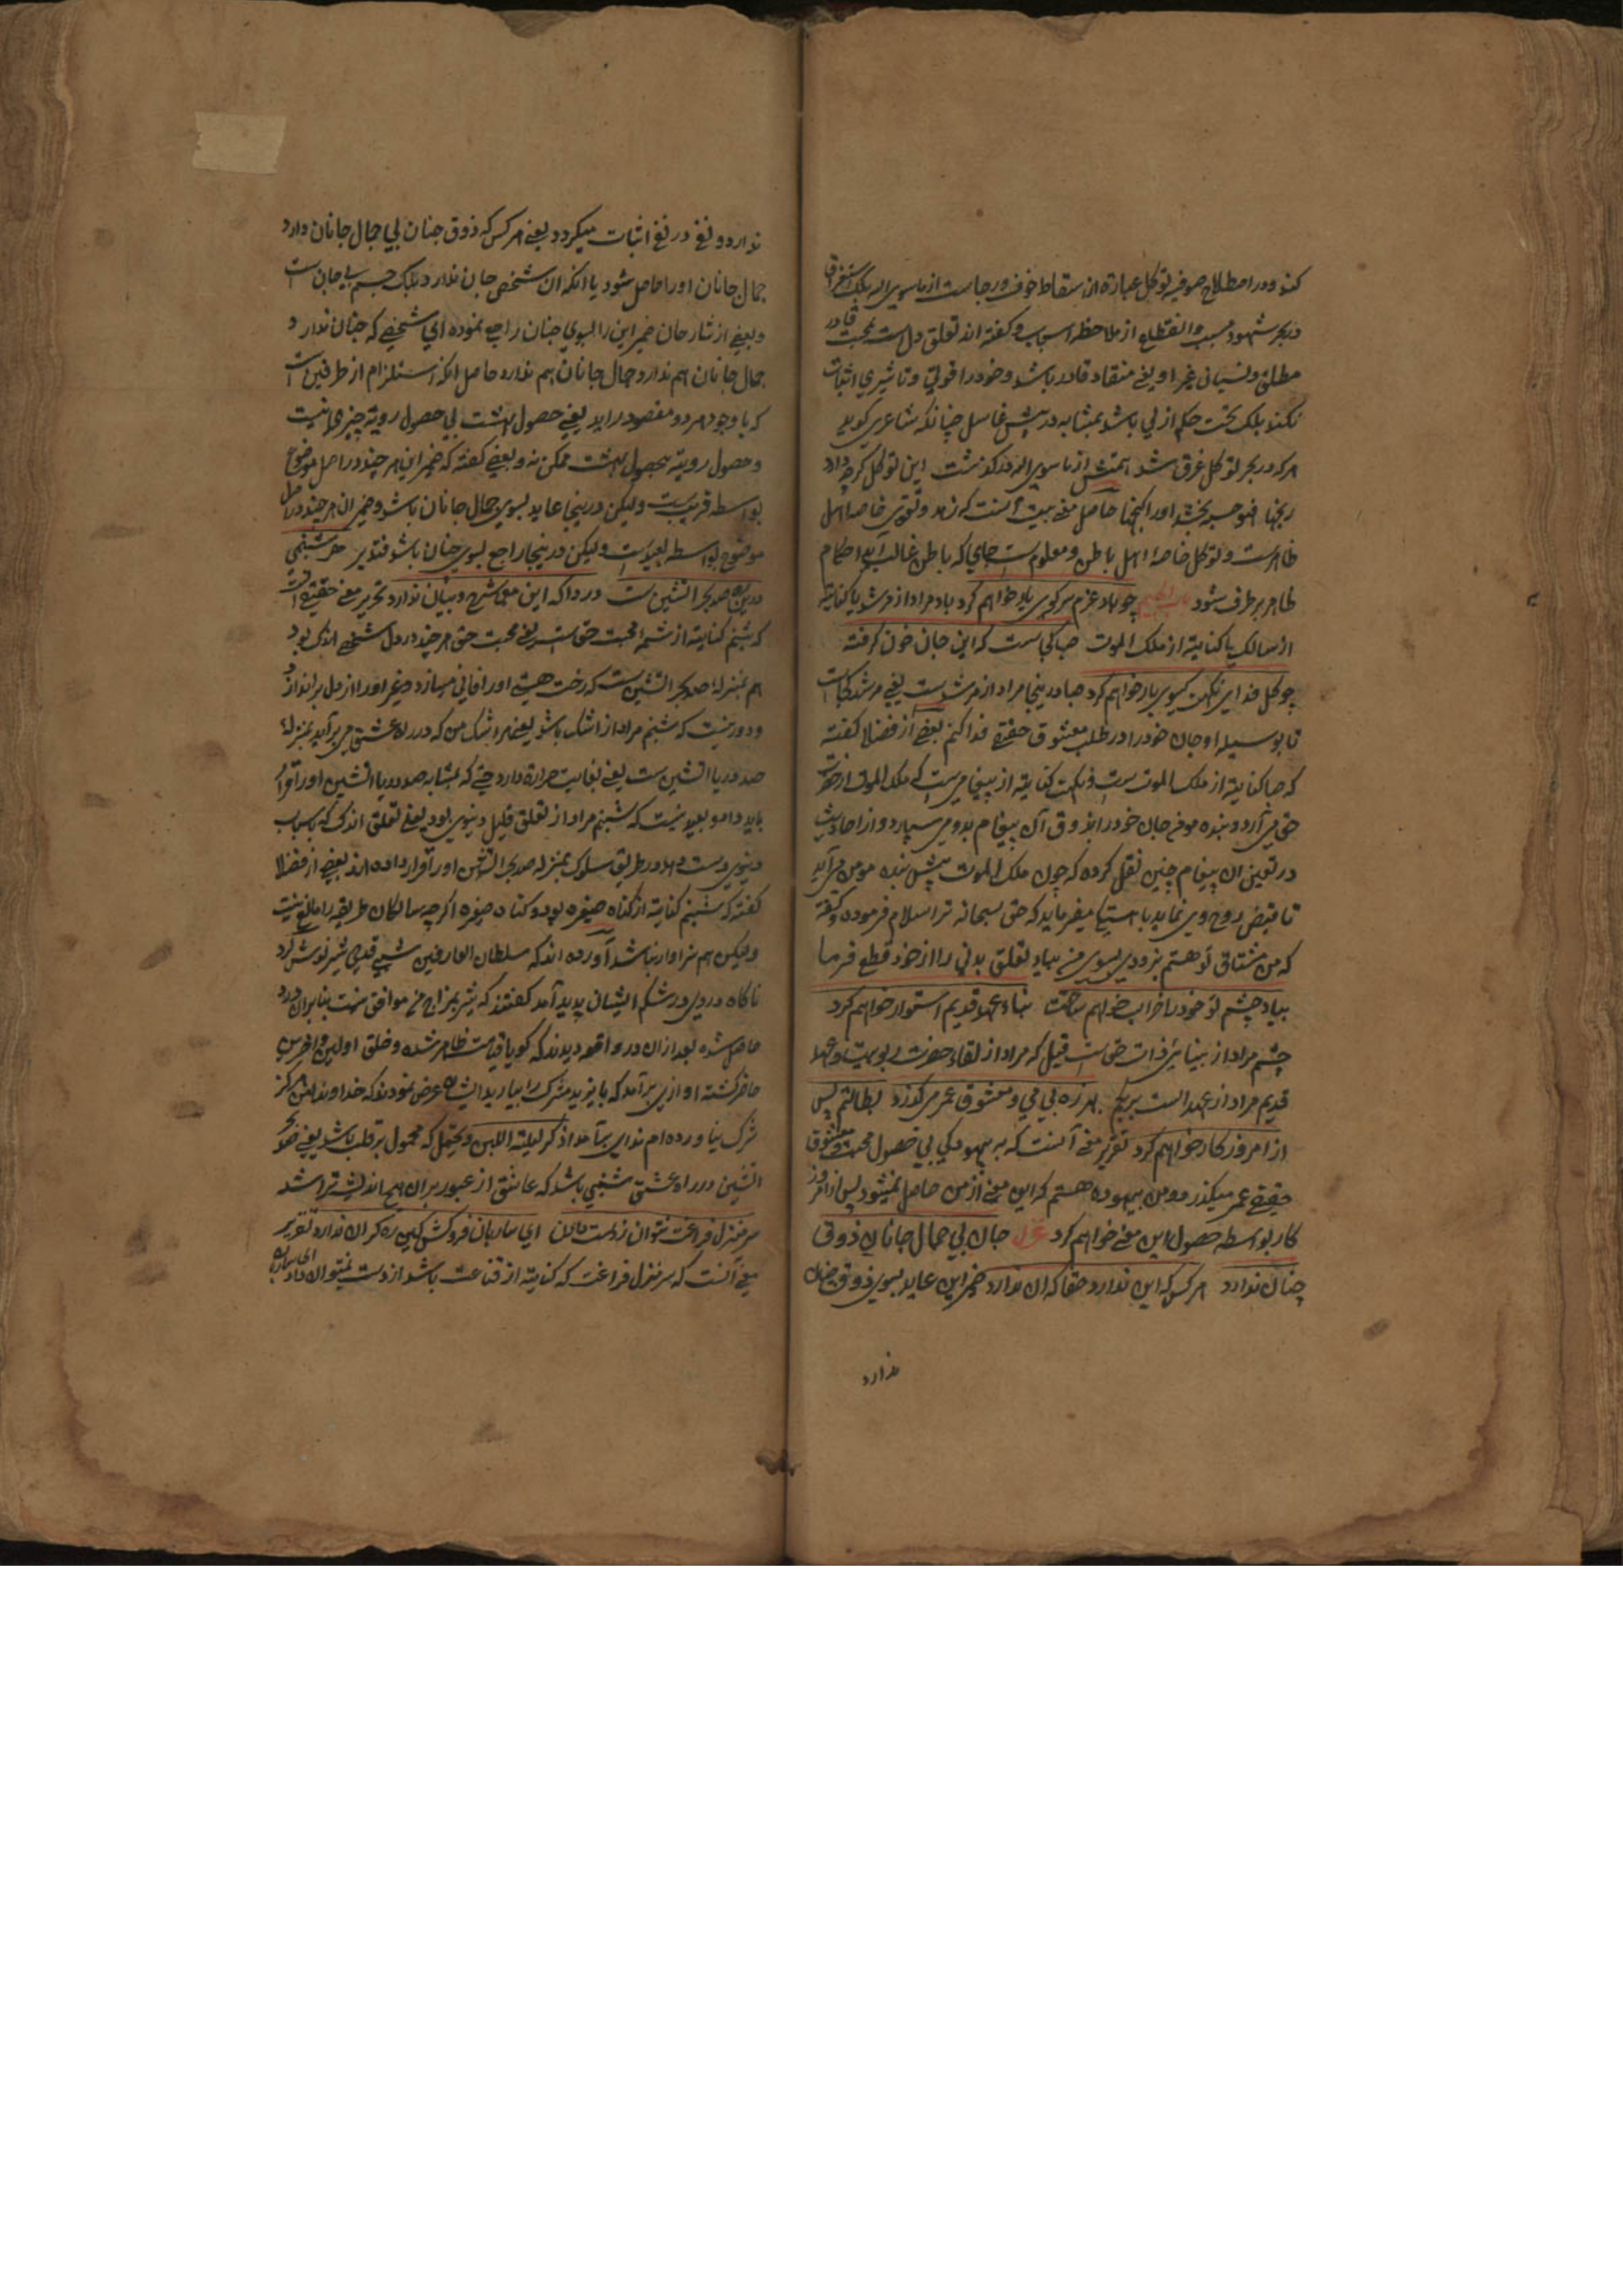 کند و در اصطلاح صوفیه توکل عبارة از اسقاط خوف و رجاست از ماسوی الله بلک استغراق
در بحر شهود مسبب و انقطاع از ملاحظه اسباب و کفته اند تعلق دل است بمحبت قادر
مطلق و نسیان غیر او یعنی منقاد قادر باشد و خود را قوتی و تاثیری اثبات
نکند بلک تحت حکم ازلی باشد بمثابه در پیش غاسل چنانکه شاعری کوید
هرکه در بحر توکل غرق شد همتش از ماسوی الله درکذشت این توکل کرچه دارد
رنجها فهو حسبه بخشد اورا کنجها حاصل معنی بیت آنست که زهد و تقوی خاصه اهل
ظاهرست و توکل خاصهٔ اهل باطن و معلوم ست جای که باطن غالب آید احکام
ظاهر بر طرف شود چو باد عزم سر کوی یار خواهم کرد باد مراد از مرشد یا کنایة
از سالک یا کنایة از ملک الموت صبا کجاست که این جان خون کرفته
چو کل فدای نکهت کیسوی یار خواهم کرد صبا درینجا مراد از مرشدست یعنی مرشد کجاست
تا بوسیله او جان خود را در طلب معشوق حقیقی فدا کنم بعضی از فضلا کفته
که صبا کنایة از ملک الموت ست و نکهت کنایة از پیغامی ست که ملک الموت از حضرت
حق می آرد و بنده مومن جان خود را بذوق آن پیغام بدو می سپارد و از احادیث
در تعین ان پیغام چنین نقل کرده که چون ملک الموت پیش بنده مومن می آید
تا قبض روح وی نماید باهستکی میفرماید که حق سبحانه ترا سلام فرموده و کفته
که من مشتاق تو هستم بزودی بسوی من بیا و تعلق بدنی را از خود قطع فرما
بیاد چشم تو خود را خراب خواهم ساخت بناء عهد قدیم استوار خواهم کرد
چشم مراد از بینائی ذات حق است قیل که مراد از لقاء حضرت ربوبیت و عهد
قدیم مراد از عهد الست بربکم بهرزه بی می و معشوق عمر می کذرد بطالتم بس
از امروز کار خواهم کرد تقریر معنی آنست که به بیهودکی بی حصول محبت و معشوق
حقیقی عمر میکذرد و من بیهوده هستم که این معنی از من حاصل نمیشود پس از امروز
کار بواسطه حصول این معنی خواهم کرد غزل جان بی جمال جانان ذوق
چنان ندارد هر کس که این ندارد حقا که ان ندارد ضمیر این عاید بسوی ذوق جنان
ندارد
ندارد و نفی در نفی اثبات میکردد یعنی هر کس که ذوق جنان بی جمال جانان دارد
جمال جانان اورا حاصل شود یا انکه ان شخص جان ندارد بلک جسم بی جان ست
و بعضی از شارحان ضمیر این را بسوی جنان راجع نموده ای شخصی که جنان ندارد
جمال جانان هم ندارد و جمال جانان هم ندارد حاصل انکه استلزام از طرفین ست
که با وجود هر دو مقصود براید یعنی حصول بهشت بی حصول رویة چیزی نیست
و حصول رویة بحصول بهشت ممکن نه و بعضی کفته که ضمیر این هر چند در اصل موضوع
بواسطه قریب ست ولیکن درینجا عاید بسوی جمال جانان باشد و ضمیر ان هر چند در اصل
موضوع بواسطه بعید است ولیکن درینجا راجع بسوی جنان باشد فتدبر هر شبنمی
درین ره صد بحر آتشین ست دردا که این معما شرح و بیان ندارد تحریر معنی حقیقی انست
که شبنم کنایة از شمه محبت حق است یعنی محبت حق هر چند در دل شخصی اندک بود
هم بمنزلهٔ صد بحر اتشین ست که رخت هستی اورا فانی میسازد و غیر اورا از دل براندازد
و دور نیست که شبنم مراد از اشک باشد یعنی هر اشک من که در ره عشق می برآید بمنزلهٔ
صد دریا اتشین ست یعنی بغایت حرارة دارد حتی که بمثابه صد دریا اتشین اورا قرار
باید داد و بعید نیست که شبنم مراد از تعلق قلیل دنیوی بود یعنی تعلق اندک که باسباب
دنیوی ست در طریق سلوک بمنزله صد بحر آتشین اورا قرار داده اند بعضی از فضلا
کفته که شبنم کنایة از کناه صغیره بود و کناه صغیره اکرچه سالکان طریقه را مانع نیست
ولیکن هم سزاوار نباشد آورده اند که سلطان العارفین شبی قدحی شیر نوش کرد
ناکاه دردی در شکم ایشان پدید آمد کفتند که شیر بمزاج من موافق نیست بنابران درد
حاصل شده بعد ازان در واقعه دیدند که کویا قیامت ظاهر شده و خلق اولین و آخرین
حاضر کشته اوازی برآمد که بایزید مشرک را بیارید ایشان عرض نمودند که خداوندا من هرکز
شرک نیاورده ام ندای برآمد اذکر لیلة اللبن و یحتمل که محمول بر قلب باشد یعنی صد بحر
اتشین در راه عشق شبنمی باشد که عاشق از عبور بران هیچ اندیشه ترا شد
سر منزل فراغت نتوان ز دست دادن ای ساربان فروکش کین ره کران ندارد تقریر
معنی آنست که سر منزل فراغت که کنایة از قناعت باشد از دست نمیتوان داد ای ساربان